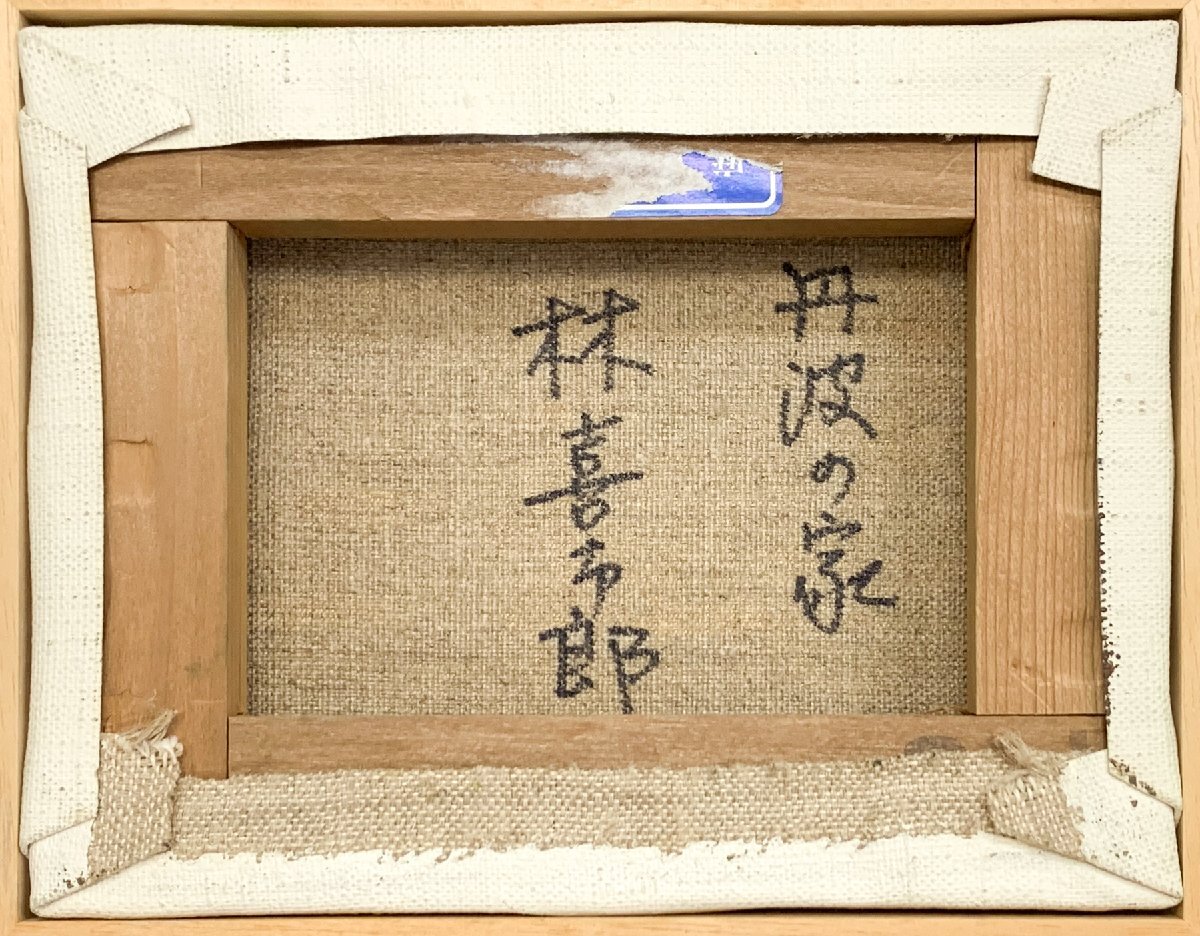 丹波の家
林喜市郎